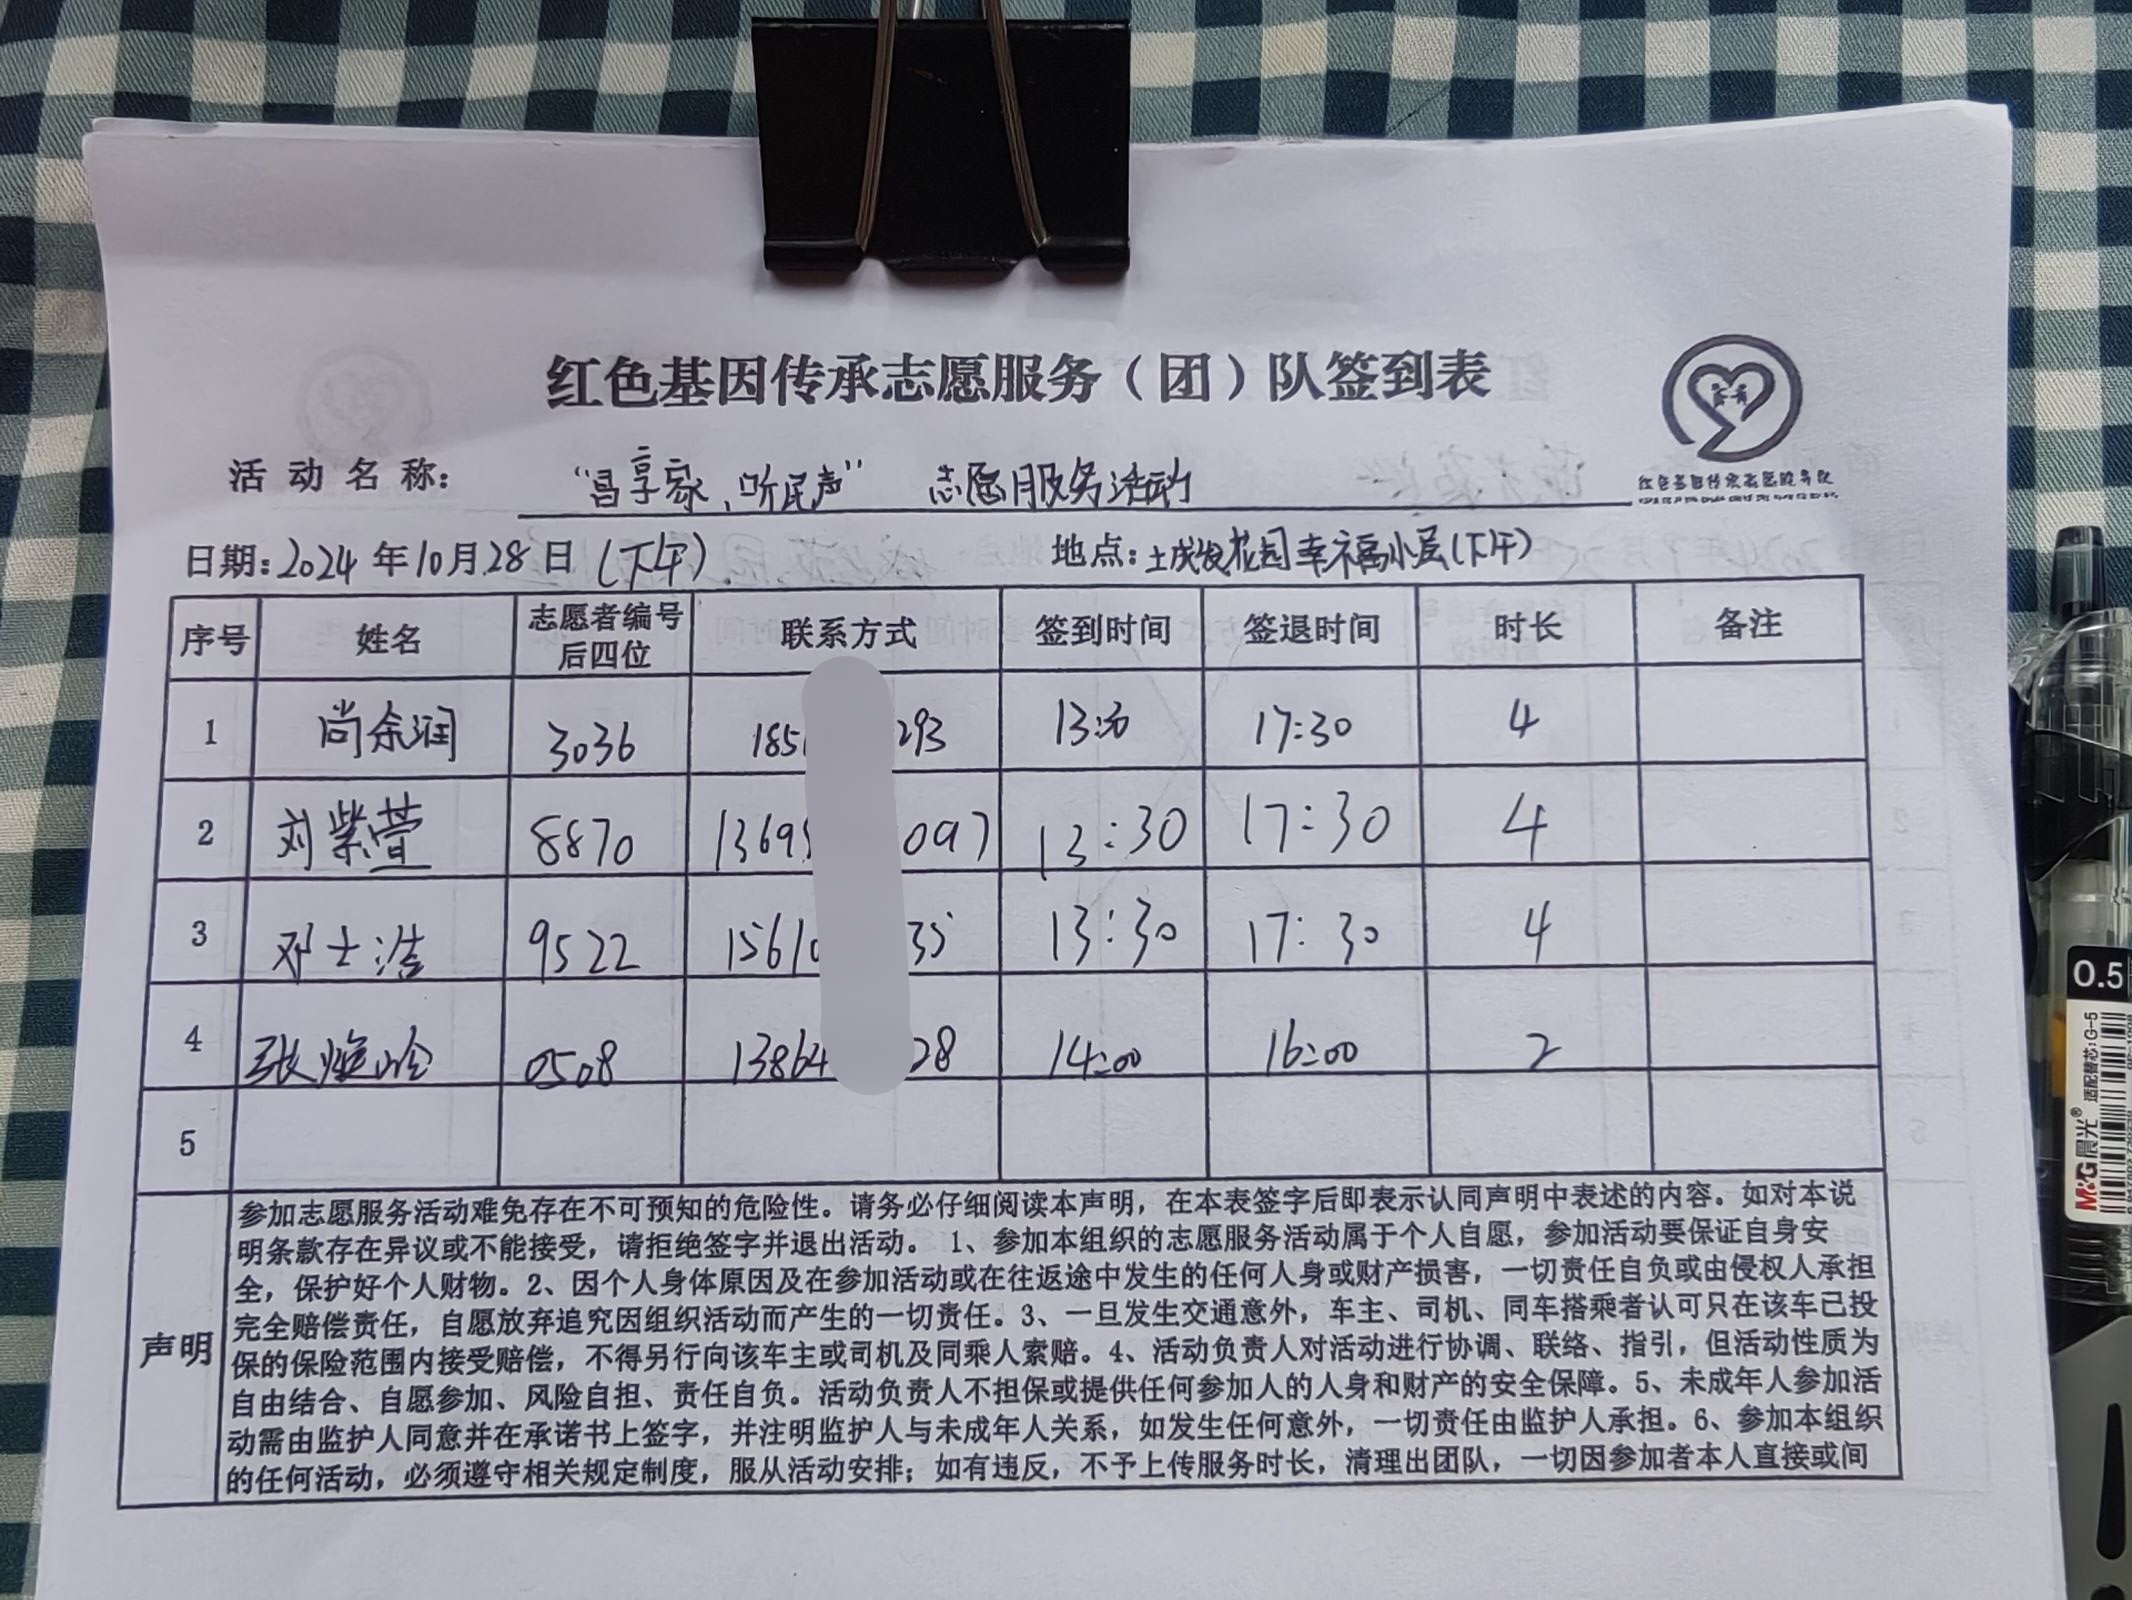 红色基因传承志愿服务（团）队签到表
活动名称： “昌享家、听民声” 志愿服务活动
红色基因传承志愿服务队
日期：2024年10月28日（下午） 地点：土城花园幸福小屋（下午）
序号 姓名 志愿者编号后四位 联系方式 签到时间 签退时间 时长 备注
1 尚余润 3036 185 293 13:30 17:30 4
2 刘紫萱 8870 1369 097 13:30 17:30 4
3 邓士浩 9522 15610 35 13:30 17:30 4
4 张 0508 13864 28 14:00 16:00 2
5
声明
参加志愿服务活动难免存在不可预知的危险性。请务必仔细阅读本声明，在本表签字后即表示认同声明中表述的内容。如对本说
明条款存在异议或不能接受，请拒绝签字并退出活动。 1、参加本组织的志愿服务活动属于个人自愿，参加活动要保证自身安
全，保护好个人财物。2、因个人身体原因及在参加活动或在往返途中发生的任何人身或财产损害，一切责任自负或由侵权人承担
完全赔偿责任，自愿放弃追究因组织活动而产生的一切责任。3、一旦发生交通意外，车主、司机、同车搭乘者认可只在该车已投
保的保险范围内接受赔偿，不得另行向该车主或司机及同乘人索赔。4、活动负责人对活动进行协调、联络、指引，但活动性质为
自由结合、自愿参加、风险自担、责任自负。活动负责人不担保或提供任何参加人的人身和财产的安全保障。5、未成年人参加活
动需由监护人同意并在承诺书上签字，并注明监护人与未成年人关系，如发生任何意外，一切责任由监护人承担。6、参加本组织
的任何活动，必须遵守相关规定制度，服从活动安排；如有违反，不予上传服务时长，清理出团队，一切因参加者本人直接或间
0.5
适配替芯：G-5
M&G晨光®